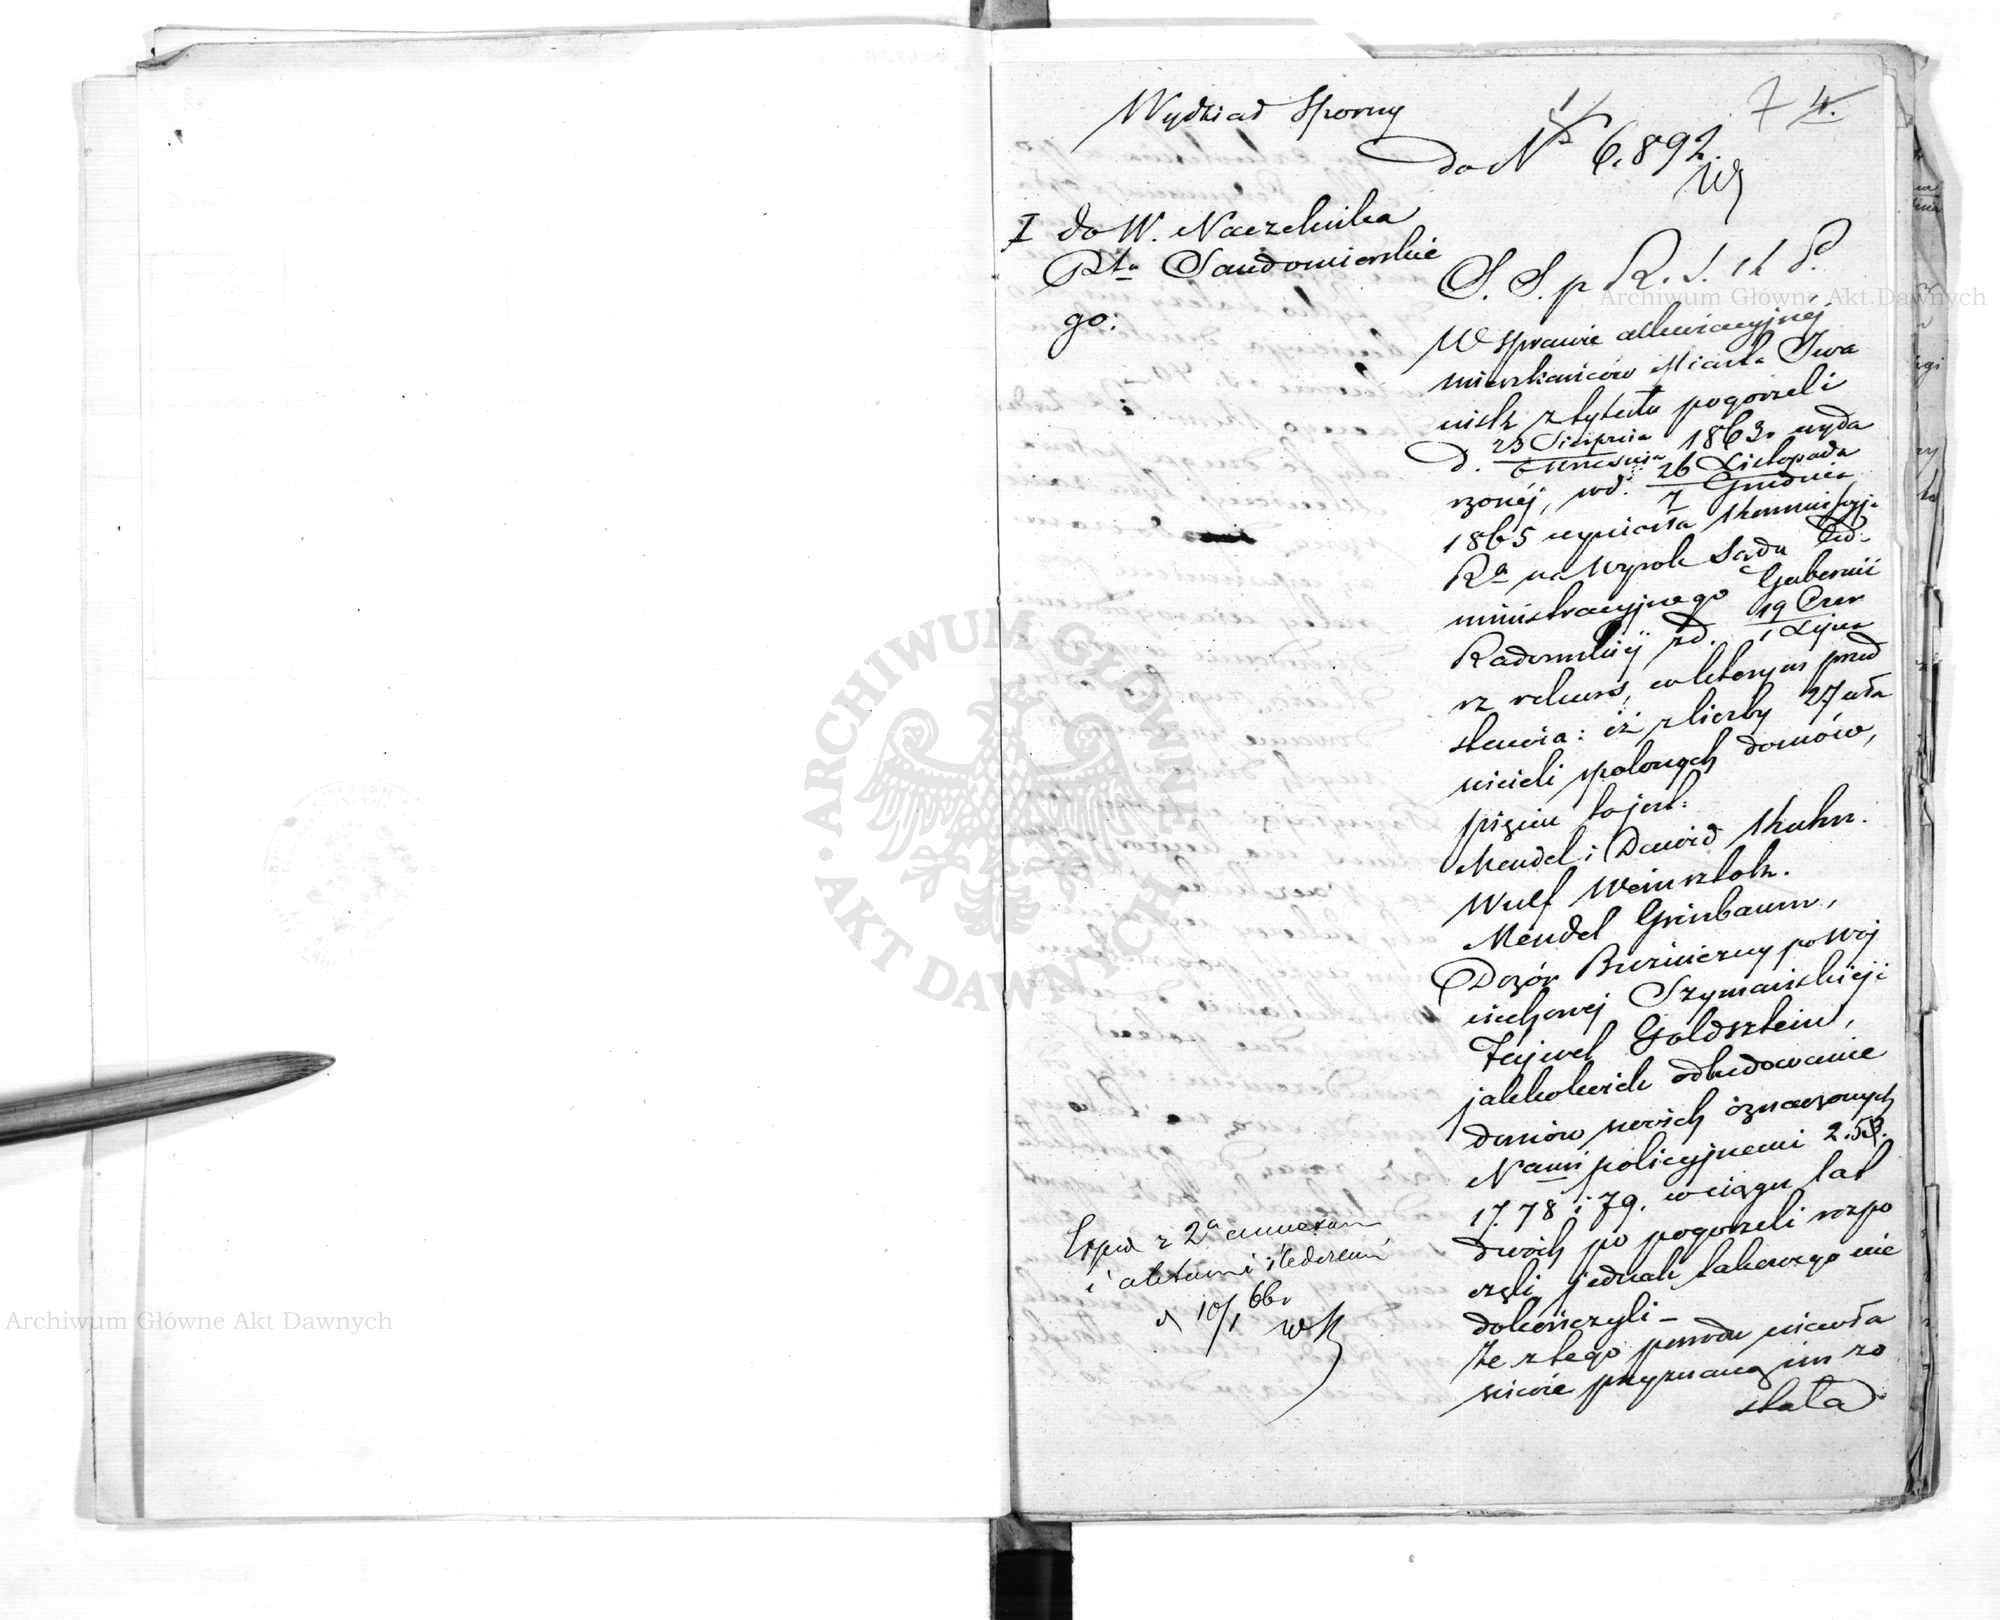 Wydział Sporny
7 4.
do N 6.892
I do W. Naczelnika
Ptu Sandomierskie
go:
S. S. p R. S. W P.
W sprawie allewiacyjnej
mieszkańców Miasta Iwa
nisk z tytułu pogorzeli
d. 23 Sierpnia
6 Września 1863 r wyda
rzonéj, wd. 26 Listopada
7 Grudnia
1865 wyniosła Kommissyja
Ra na Wyrok Sądu Ad-
ministracyjnego Gubernii
Radomskiej zd. 19 Czer
1 Lipca
rz rekurs, w którym przed
stawia: iż z liczby 27 wła
ścicieli spalonych domów,
pięciu to jest:
Mendel i Dawid Kuhn.
Wulf Weinsztok.
Mendel Grinbaum,
Dozór Bużniczny po Woj
ciechowej Szymańskiej i
Fajwel Goldsztein,
jakkolwiek odbudowanie
domów swoich oznaczonych
Nami policyjnemi 2. 53.
17. 78 i 79. w ciągu lat
dwóch po pogorzeli rozpo
częli, jednak takowego nie
dokończyli –
że z tego powodu niewła
ściwie przyznaną im zo
stała
Exped z 2a annexami
i aktami śledczemi
d 10/1 66 r
Archiwum Główne Akt Dawnych
ARCHIWUM GŁÓWNE · AKT DAWNYCH ·
Archiwum Główne Akt Dawnych